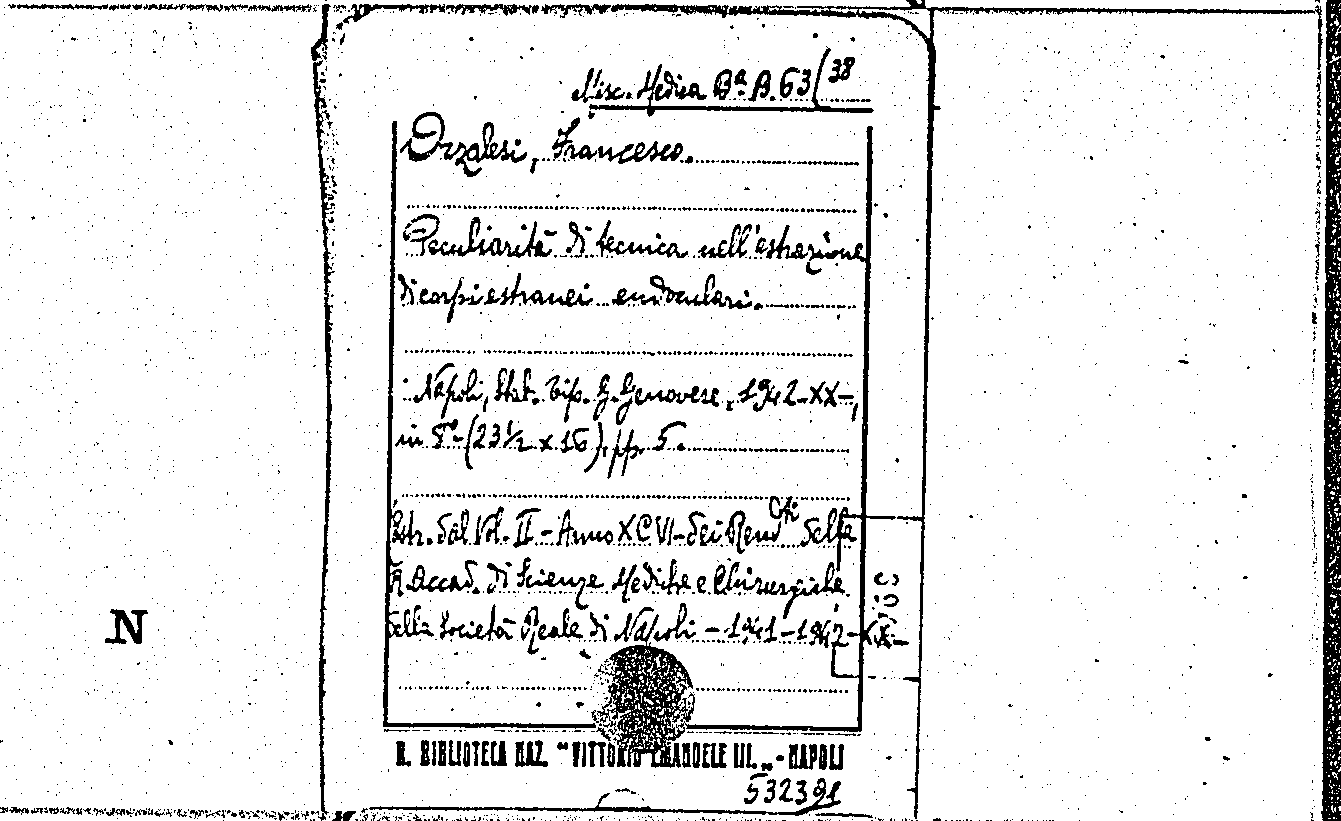 Misc. Medica Bª. B. 63/38
Orzalesi, Francesco.
Peculiarità di tecnica nell'estrazione
di corpi estranei endoculari.
Napoli, Stab. Tip. G. Genovese, 1942-XX-,
in 8º-(23½ x 16), pp. 5.
Estr. dal Vol. II - Anno XCVI - dei Rendcti della
R. Accad. di Scienze Mediche e Chirurgiche
della Società Reale di Napoli - 1941-1942-XX-
N
R. BIBLIOTECA NAZ. "VITTORIO EMANUELE III." - NAPOLI
532391